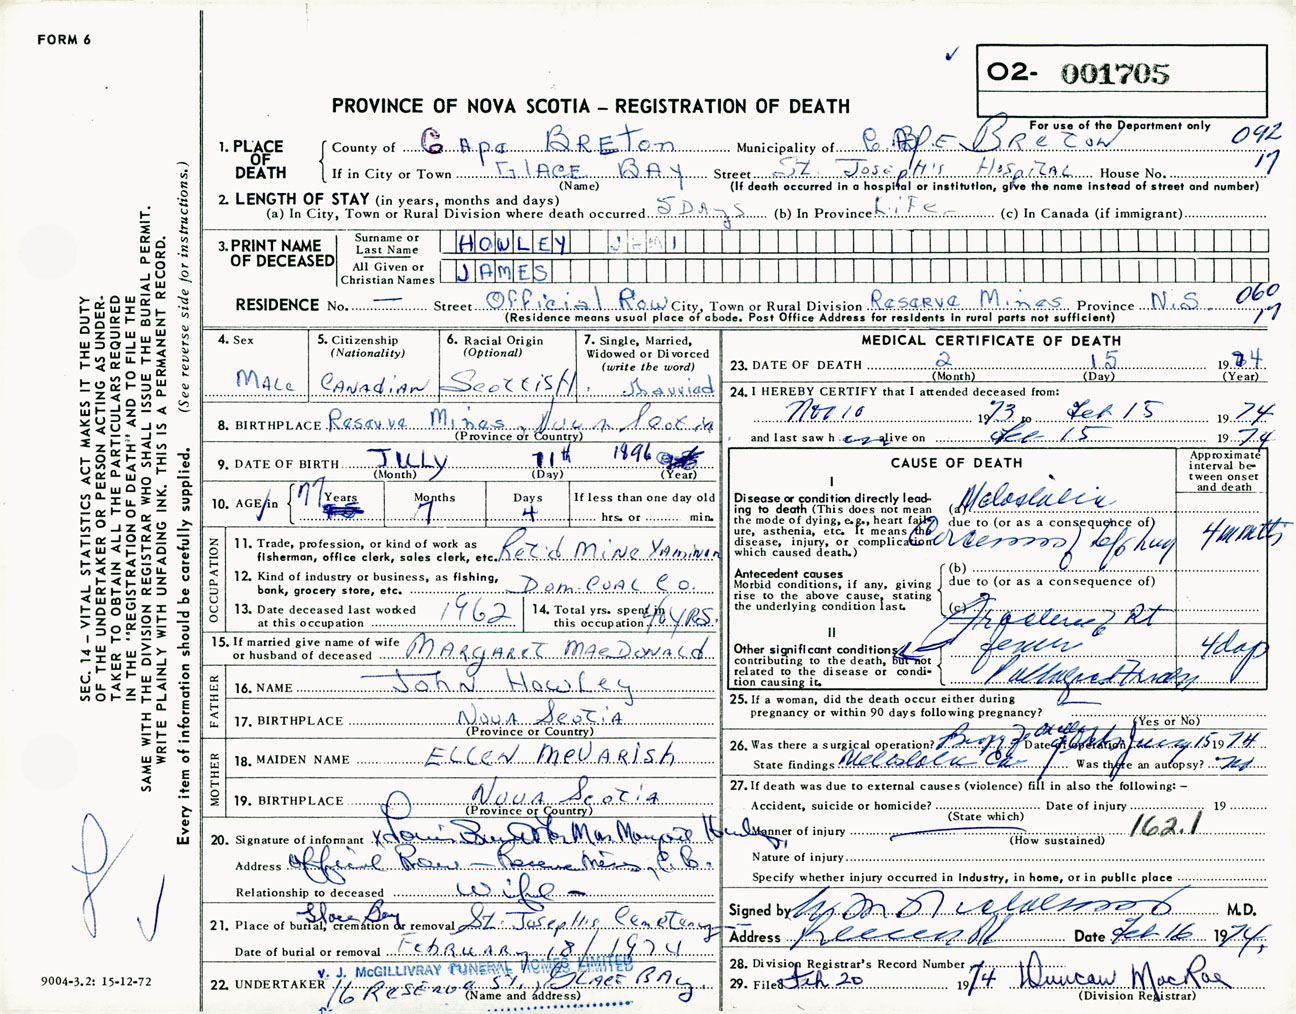 FORM 6
O2- 001705
PROVINCE OF NOVA SCOTIA – REGISTRATION OF DEATH
For use of the Department only
092
17
1. PLACE OF DEATH
County of Cape BRETON Municipality of CAPE BRETON
If in City or Town GLACE BAY Street ST. JOSEPH'S HOSPITAL House No.
(Name) (If death occurred in a hospital or institution, give the name instead of street and number)
2. LENGTH OF STAY (in years, months and days)
(a) In City, Town or Rural Division where death occurred 5 DAYS (b) In Province LIFE (c) In Canada (if immigrant)
3. PRINT NAME OF DECEASED
Surname or Last Name HOWLEY
All Given or Christian Names JAMES
RESIDENCE No. — Street Official Row City, Town or Rural Division Reserve Mines Province N.S. 060
17
(Residence means usual place of abode. Post Office Address for residents in rural parts not sufficient)
4. Sex
MALE
5. Citizenship (Nationality)
CANADIAN
6. Racial Origin (Optional)
SCOTTISH
7. Single, Married, Widowed or Divorced (write the word)
Married
8. BIRTHPLACE Reserve Mines, Nova Scotia
(Province or Country)
9. DATE OF BIRTH JULLY 11th 1896
(Month) (Day) (Year)
10. AGE in 77 Years
Months 7
Days 4
If less than one day old
hrs. or min.
OCCUPATION
11. Trade, profession, or kind of work as fisherman, office clerk, sales clerk, etc. Ret'd Mine
12. Kind of industry or business, as fishing, bank, grocery store, etc. DOM. COAL CO.
13. Date deceased last worked at this occupation 1962
14. Total yrs. spent in this occupation 40 YRS.
15. If married give name of wife or husband of deceased MARGARET MACDONALD
FATHER
16. NAME JOHN HOWLEY
17. BIRTHPLACE NOVA SCOTIA
(Province or Country)
MOTHER
18. MAIDEN NAME ELLEN McVARISH
19. BIRTHPLACE NOVA SCOTIA
(Province or Country)
20. Signature of informant x for Mrs Margaret Howley
Address Official Row – Reserve Mines, C.B.
Relationship to deceased Wife –
21. Place of burial, cremation or removal Glace Bay St. Joseph's Cemetery
Date of burial or removal FEBRUARY 18/1974
V. J. McGILLIVRAY FUNERAL HOMES LIMITED
22. UNDERTAKER 16 RESERVE ST., GLACE BAY.
(Name and address)
MEDICAL CERTIFICATE OF DEATH
23. DATE OF DEATH 2 15 1974
(Month) (Day) (Year)
24. I HEREBY CERTIFY that I attended deceased from:
Nov 10 1973 to Feb 15 1974
and last saw him alive on Feb 15 1974
CAUSE OF DEATH
Approximate interval between onset and death
I
Disease or condition directly leading to death (This does not mean the mode of dying, e.g., heart failure, asthenia, etc. It means the disease, injury, or complication which caused death.)
(a)
due to (or as a consequence of)
Carcinoma of left lung 4 months
Antecedent causes
Morbid conditions, if any, giving rise to the above cause, stating the underlying condition last.
(b)
due to (or as a consequence of)
(c)
II
Other significant conditions contributing to the death, but not related to the disease or condition causing it.
Fracture Rt femur 4 days
25. If a woman, did the death occur either during pregnancy or within 90 days following pregnancy?
(Yes or No)
26. Was there a surgical operation? Date of operation 15 1974
State findings Was there an autopsy? no
27. If death was due to external causes (violence) fill in also the following: –
Accident, suicide or homicide? Date of injury 19
(State which)
Manner of injury 162.1
(How sustained)
Nature of injury
Specify whether injury occurred in Industry, in home, or in public place
Signed by M.D.
Address Date Feb 16 1974.
28. Division Registrar's Record Number
29. Filed Feb 20 1974 Duncan MacRae
(Division Registrar)
SEC. 14 – VITAL STATISTICS ACT MAKES IT THE DUTY
OF THE UNDERTAKER OR PERSON ACTING AS UNDERTAKER
TO OBTAIN ALL THE PARTICULARS REQUIRED
IN THE "REGISTRATION OF DEATH" AND TO FILE THE
SAME WITH THE DIVISION REGISTRAR WHO SHALL ISSUE THE BURIAL PERMIT.
WRITE PLAINLY WITH UNFADING INK. THIS IS A PERMANENT RECORD.
Every item of information should be carefully supplied. (See reverse side for instructions.)
9004-3.2: 15-12-72